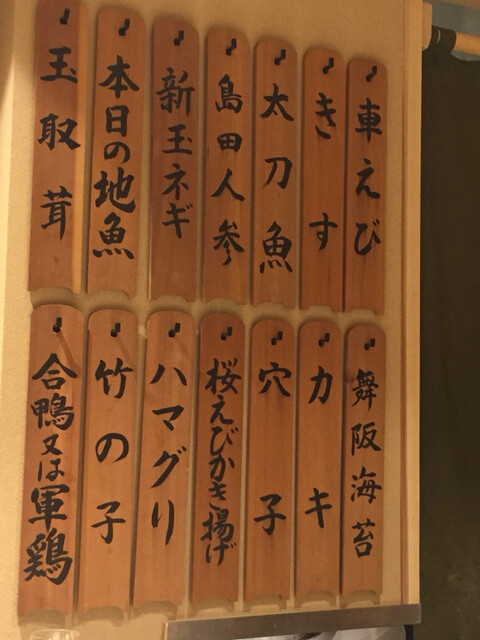 車えび
きす
太刀魚
島田人参
新玉ネギ
本日の地魚
玉取茸
舞阪海苔
カキ
穴子
桜えびかき揚げ
ハマグリ
竹の子
合鴨又は軍鶏